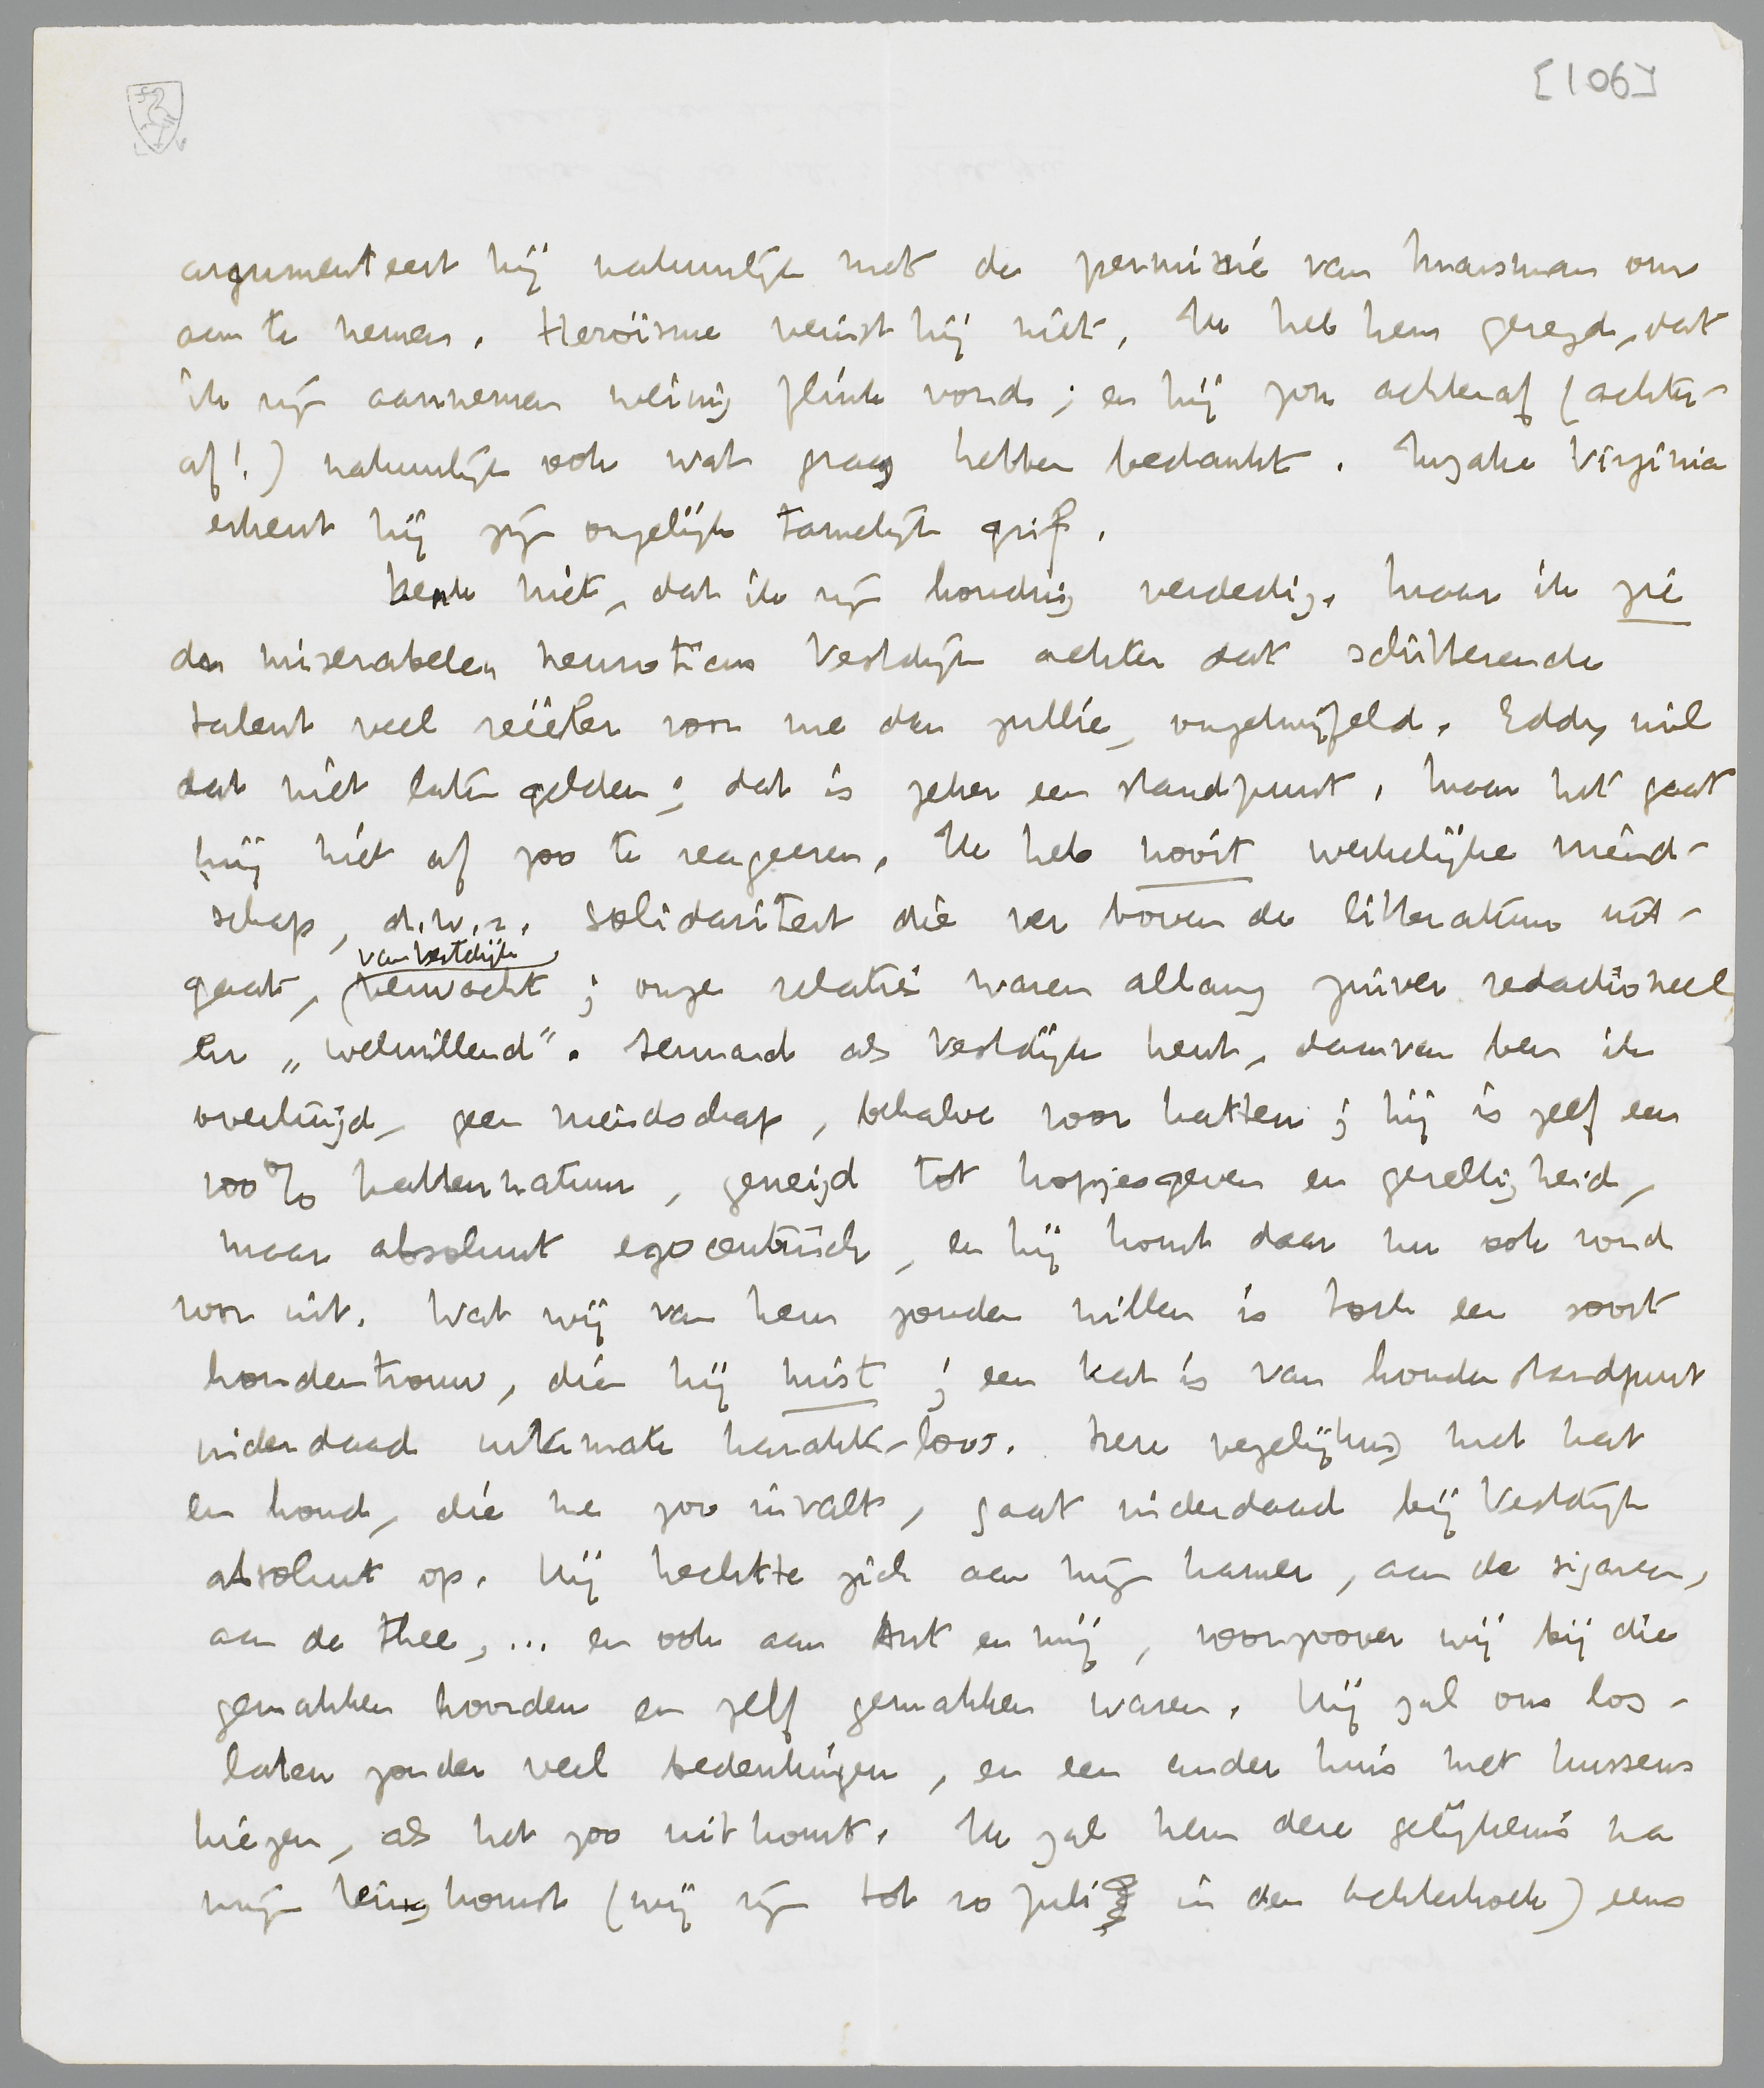 [106]
argumenteert hij natuurlijk met de permissie van Marsman om
aan te nemen. Heroïsme veinst hij niet. Ik heb hem gezegd, dat
ik zijn aannemen weinig flink vond; en hij zou achteraf (achter-
af!) natuurlijk ook wat graag hebben bedankt. Inzake Virginia
erkent hij zijn ongelijk tamelijk grif.
Denk niet, dat ik zijn houding verdedig. Maar ik zie
den miserabelen neuroticus Vestdijk achter dat schitterende
talent veel reëeler voor me dan jullie, ongetwijfeld. Eddy wil
dat niet laten gelden; dat is zeker een standpunt. Maar het gaat
mij niet af zoo te reageeren. Ik heb nooit werkelijke vriend-
schap, d.w.z. solidariteit die ver boven de litteratuur uit-
van Vestdijk
gaat, verwacht; onze relaties waren allang zuiver redactioneel
en „welwillend". Iemand als Vestdijk kent, daarvan ben ik
overtuigd, geen vriendschap, behalve voor katten; hij is zelf een
100% kattennatuur, geneigd tot kopjesgeven en gezelligheid,
maar absoluut egocentrisch, en hij komt daar nu ook rond
voor uit. Wat wij van hem zouden willen is toch een soort
hondentrouw, die hij mist; een kat is van hondenstandpunt
inderdaad uitermate karakterloos. Deze vergelijking met kat
en hond, die me zoo invalt, gaat inderdaad bij Vestdijk
absoluut op. Hij hechtte zich aan mijn kamer, aan de sigaren,
aan de thee, ... en ook aan Ant en mij, voorzoover wij bij die
gemakken hoorden en zelf gemakken waren. Hij zal ons los-
laten zonder veel bedenkingen, en een ander huis met kussens
kiezen, als het zoo uitkomt. Ik zal hem deze gelijkenis na
mijn terugkomst (wij zijn tot 10 Juli in den Achterhoek) eens